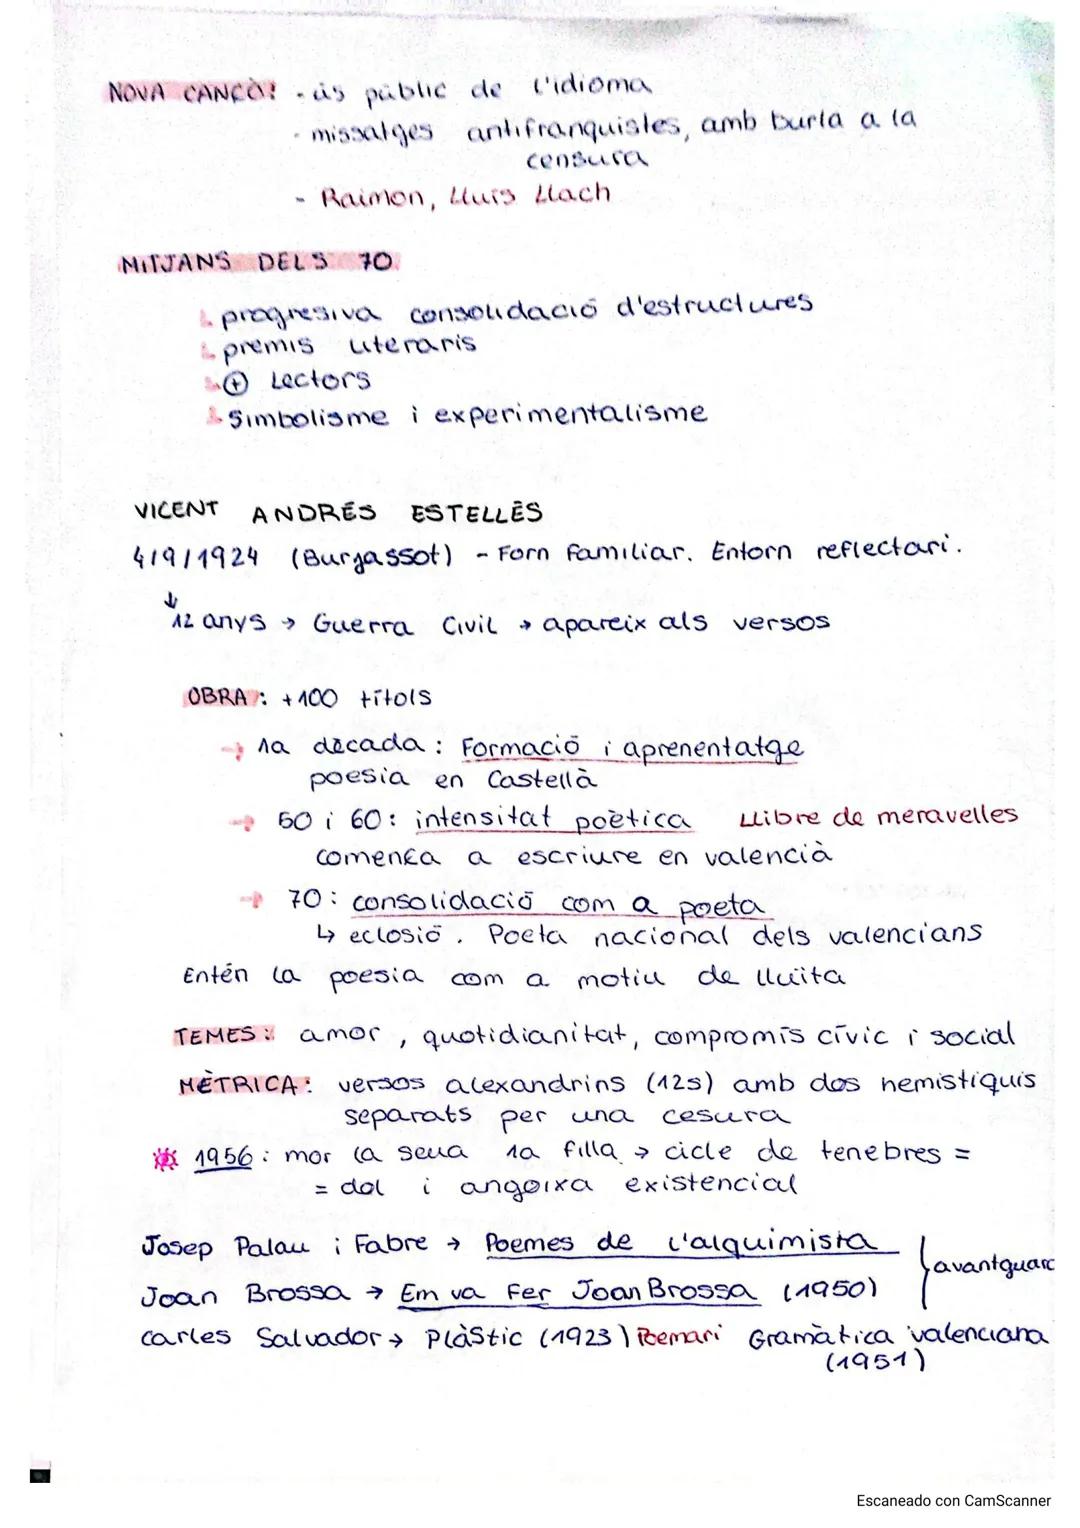 NOVA CANÇÒ: - ús públic de l'idioma
- missatges antifranquistes, amb burla a la
censura
- Raimon, Lluís Llach
MITJANS DELS 70
progresiva consolidació d'estructures
premis literaris
⊕ Lectors
Simbolisme i experimentalisme
VICENT ANDRÉS ESTELLÉS
4/9/1924 (Burjassot) - Forn familiar. Entorn reflectari.
↓
12 anys → Guerra Civil → apareix als versos
OBRA: +100 títols
→ 1a dècada: Formació i aprenentatge
poesia en Castellà
→ 50 i 60: intensitat poètica Llibre de meravelles
comença a escriure en valencià
→ 70: consolidació com a poeta
↳ eclosió. Poeta nacional dels valencians
Entén la poesia com a motiu de lluita
TEMES: amor, quotidianitat, compromís cívic i social
MÈTRICA: versos alexandrins (12s) amb dos hemistiquis
separats per una cesura
1956: mor la seua 1a filla → cicle de tenebres =
= dol i angoixa existencial
Josep Palau i Fabre → Poemes de l'alquimista
Joan Brossa → Em va fer Joan Brossa (1950)
} avantguard
Carles Salvador → Plàstic (1923) Poemari Gramàtica valenciana
(1951)
Escaneado con CamScanner